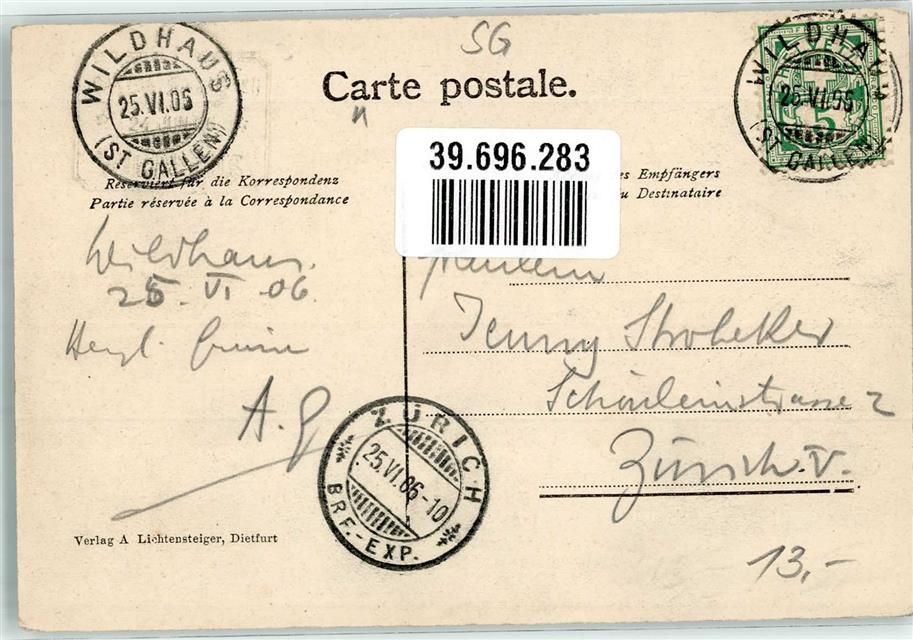 SG
Carte postale.
WILDHAUS
25.VI.06
(ST GALLEN)
WILDHAUS
25.VI.06
(ST GALLEN)
5
39.696.283
Reserviert für die Korrespondenz
Partie réservée à la Correspondance
es Empfängers
u Destinataire
Wildhaus.
25. VI 06.
Herzl. Grüsse
A. G
Fräulein
Jenny Strobeker
Schönleinstrasse 2
Zürich. V.
ZÜRICH
25.VI.06-10
BRF.-EXP.
Verlag A Lichtensteiger, Dietfurt
13,-